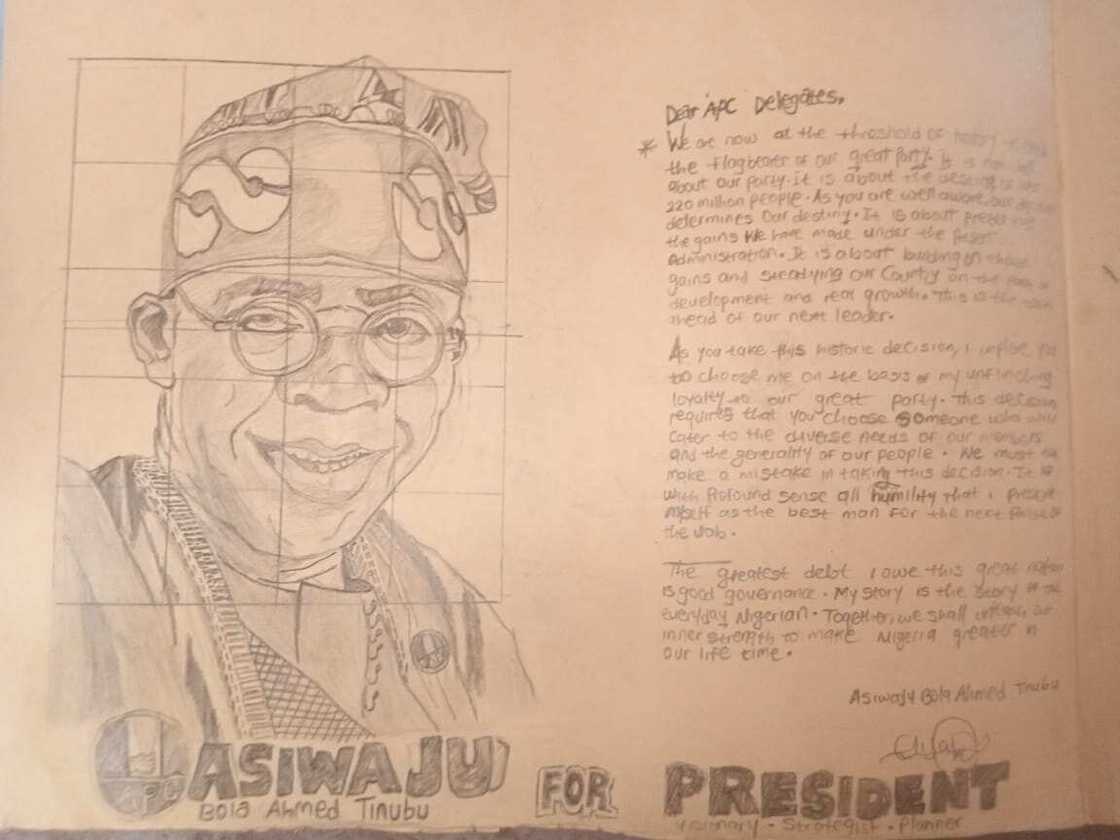 Dear APC Delegates,
* We are now at the threshold of
the flagbearer of our great party. It is not
about our party. It is about the destiny of
220 million people. As you are well aware, our
determines our destiny. It is about
the gains we have made under the
Administration. It is about building on those
gains and steadying our Country on the path of
development and real growth. This is the
ahead of our next leader.
As you take this historic decision, I implore you
to choose me on the basis of my unflinching
loyalty to our great party. This decision
requires that you choose Someone who will
cater to the diverse needs of our members
and the generality of our people. We must
make a mistake in taking this decision. It is
with Profound sense all humility that I present
myself as the best man for the next phase of
the Job.
The greatest debt I owe this great nation
is good governance. My story is the story of the
everyday Nigerian. Together, we shall our
inner strength to make Nigeria greater in
our life time.
Asiwaju Bola Ahmed Tinubu
APC
ASIWAJU FOR PRESIDENT
Bola Ahmed Tinubu
Visionary • Strategist • Planner